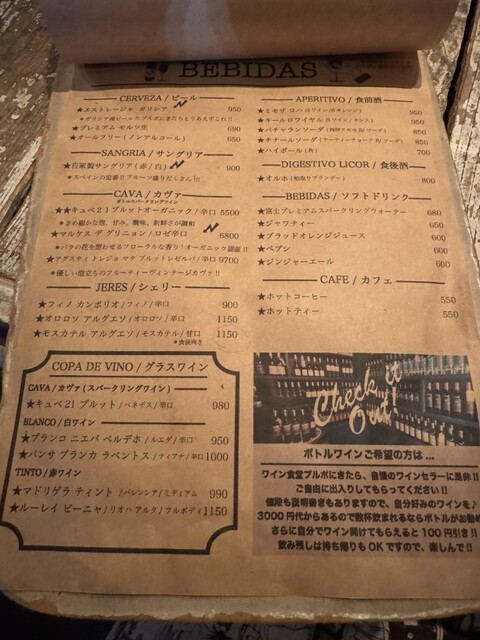 BEBIDAS
CERVEZA / ビール
★エストレージャ ガリシア 950
★プレミアム モルツ生 690
★オールフリー (ノンアルコール) 650
SANGRIA / サングリア
★自家製サングリア (赤/白) 900
★スペインの定番!! フルーツ盛りだくさん!!
CAVA / カヴァ
★★キュベ21 ブルットオーガニック / 辛口 5500
★きめ細かな泡、甘み、酸味、新鮮さが調和
★マルケス デ グリニョン / ロゼ辛口 6800
★バラの花を想わせるフローラルな香り!オーガニック認証!!
★アグスティ トレジョ マタ ブルットレゼルバ / 辛口 9700
★優しい泡立ちのフルーティーヴィンテージカヴァ!!
JERES / シェリー
★フィノ カンボリオ / フィノ / 辛口 900
★オロロソ アルグエソ / オロロソ / 辛口 1150
★モスカテル アルグエソ / モスカテル / 甘口 1150
★食後向き
COPA DE VINO / グラスワイン
CAVA / カヴァ (スパークリングワイン)
★キュベ21 ブルット / ペネデス / 辛口 980
BLANCO / 白ワイン
★ブランコ ニエバ ベルデホ / ルエダ / 辛口 950
★パンサ ブランカ ラベントス / ティアナ / 辛口 1000
TINTO / 赤ワイン
★マドリゲラ ティント / バレンシア / ミディアム 990
★ルーレイ ビーニャ / リオハ アルタ / フルボディ 1150
APERITIVO / 食前酒
★ミモザ ロハ 850
★キールロワイヤル 950
★パチャランソーダ 850
★チナールソーダ 850
★ハイボール (角) 700
DIGESTIVO LICOR / 食後酒
★オルホ (粕取りブランデー) 800
BEBIDAS / ソフトドリンク
★富士プレミアムスパークリングウォーター 680
★ジャワティー 650
★ブラッドオレンジジュース 600
★ペプシ 600
★ジンジャーエール 600
CAFE / カフェ
★ホットコーヒー 550
★ホットティー 550
Check it
Out!
ボトルワインご希望の方は…
ワイン食堂ブルボにきたら、自慢のワインセラーに是非!!
ご自由に出入りしてもらってください!!
値段も説明書きもありますので、自分好みのワインを♪
3000円代からあるので数杯飲まれるならボトルがお勧め
さらに自分でワイン開けてもらえると100円引き!!
飲み残しは持ち帰りもOKですので、楽しんで!!